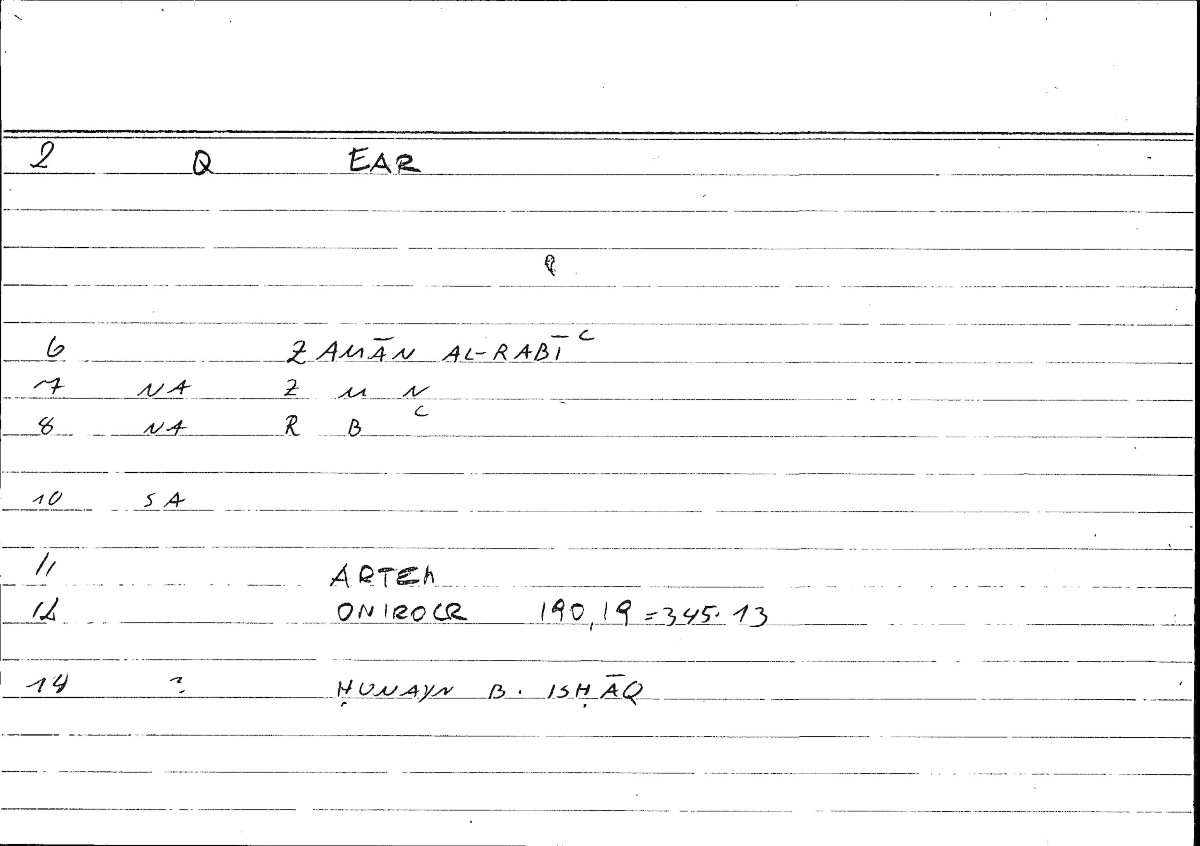 2 Q EAR
6 ZAMĀN AL-RABĪC
7 NA Z M N
8 NA R B C
10 SA
11 ARTEM
12 ONIROCR 190,19=345.13
14 ? ḤUNAYN B. ISḤĀQ